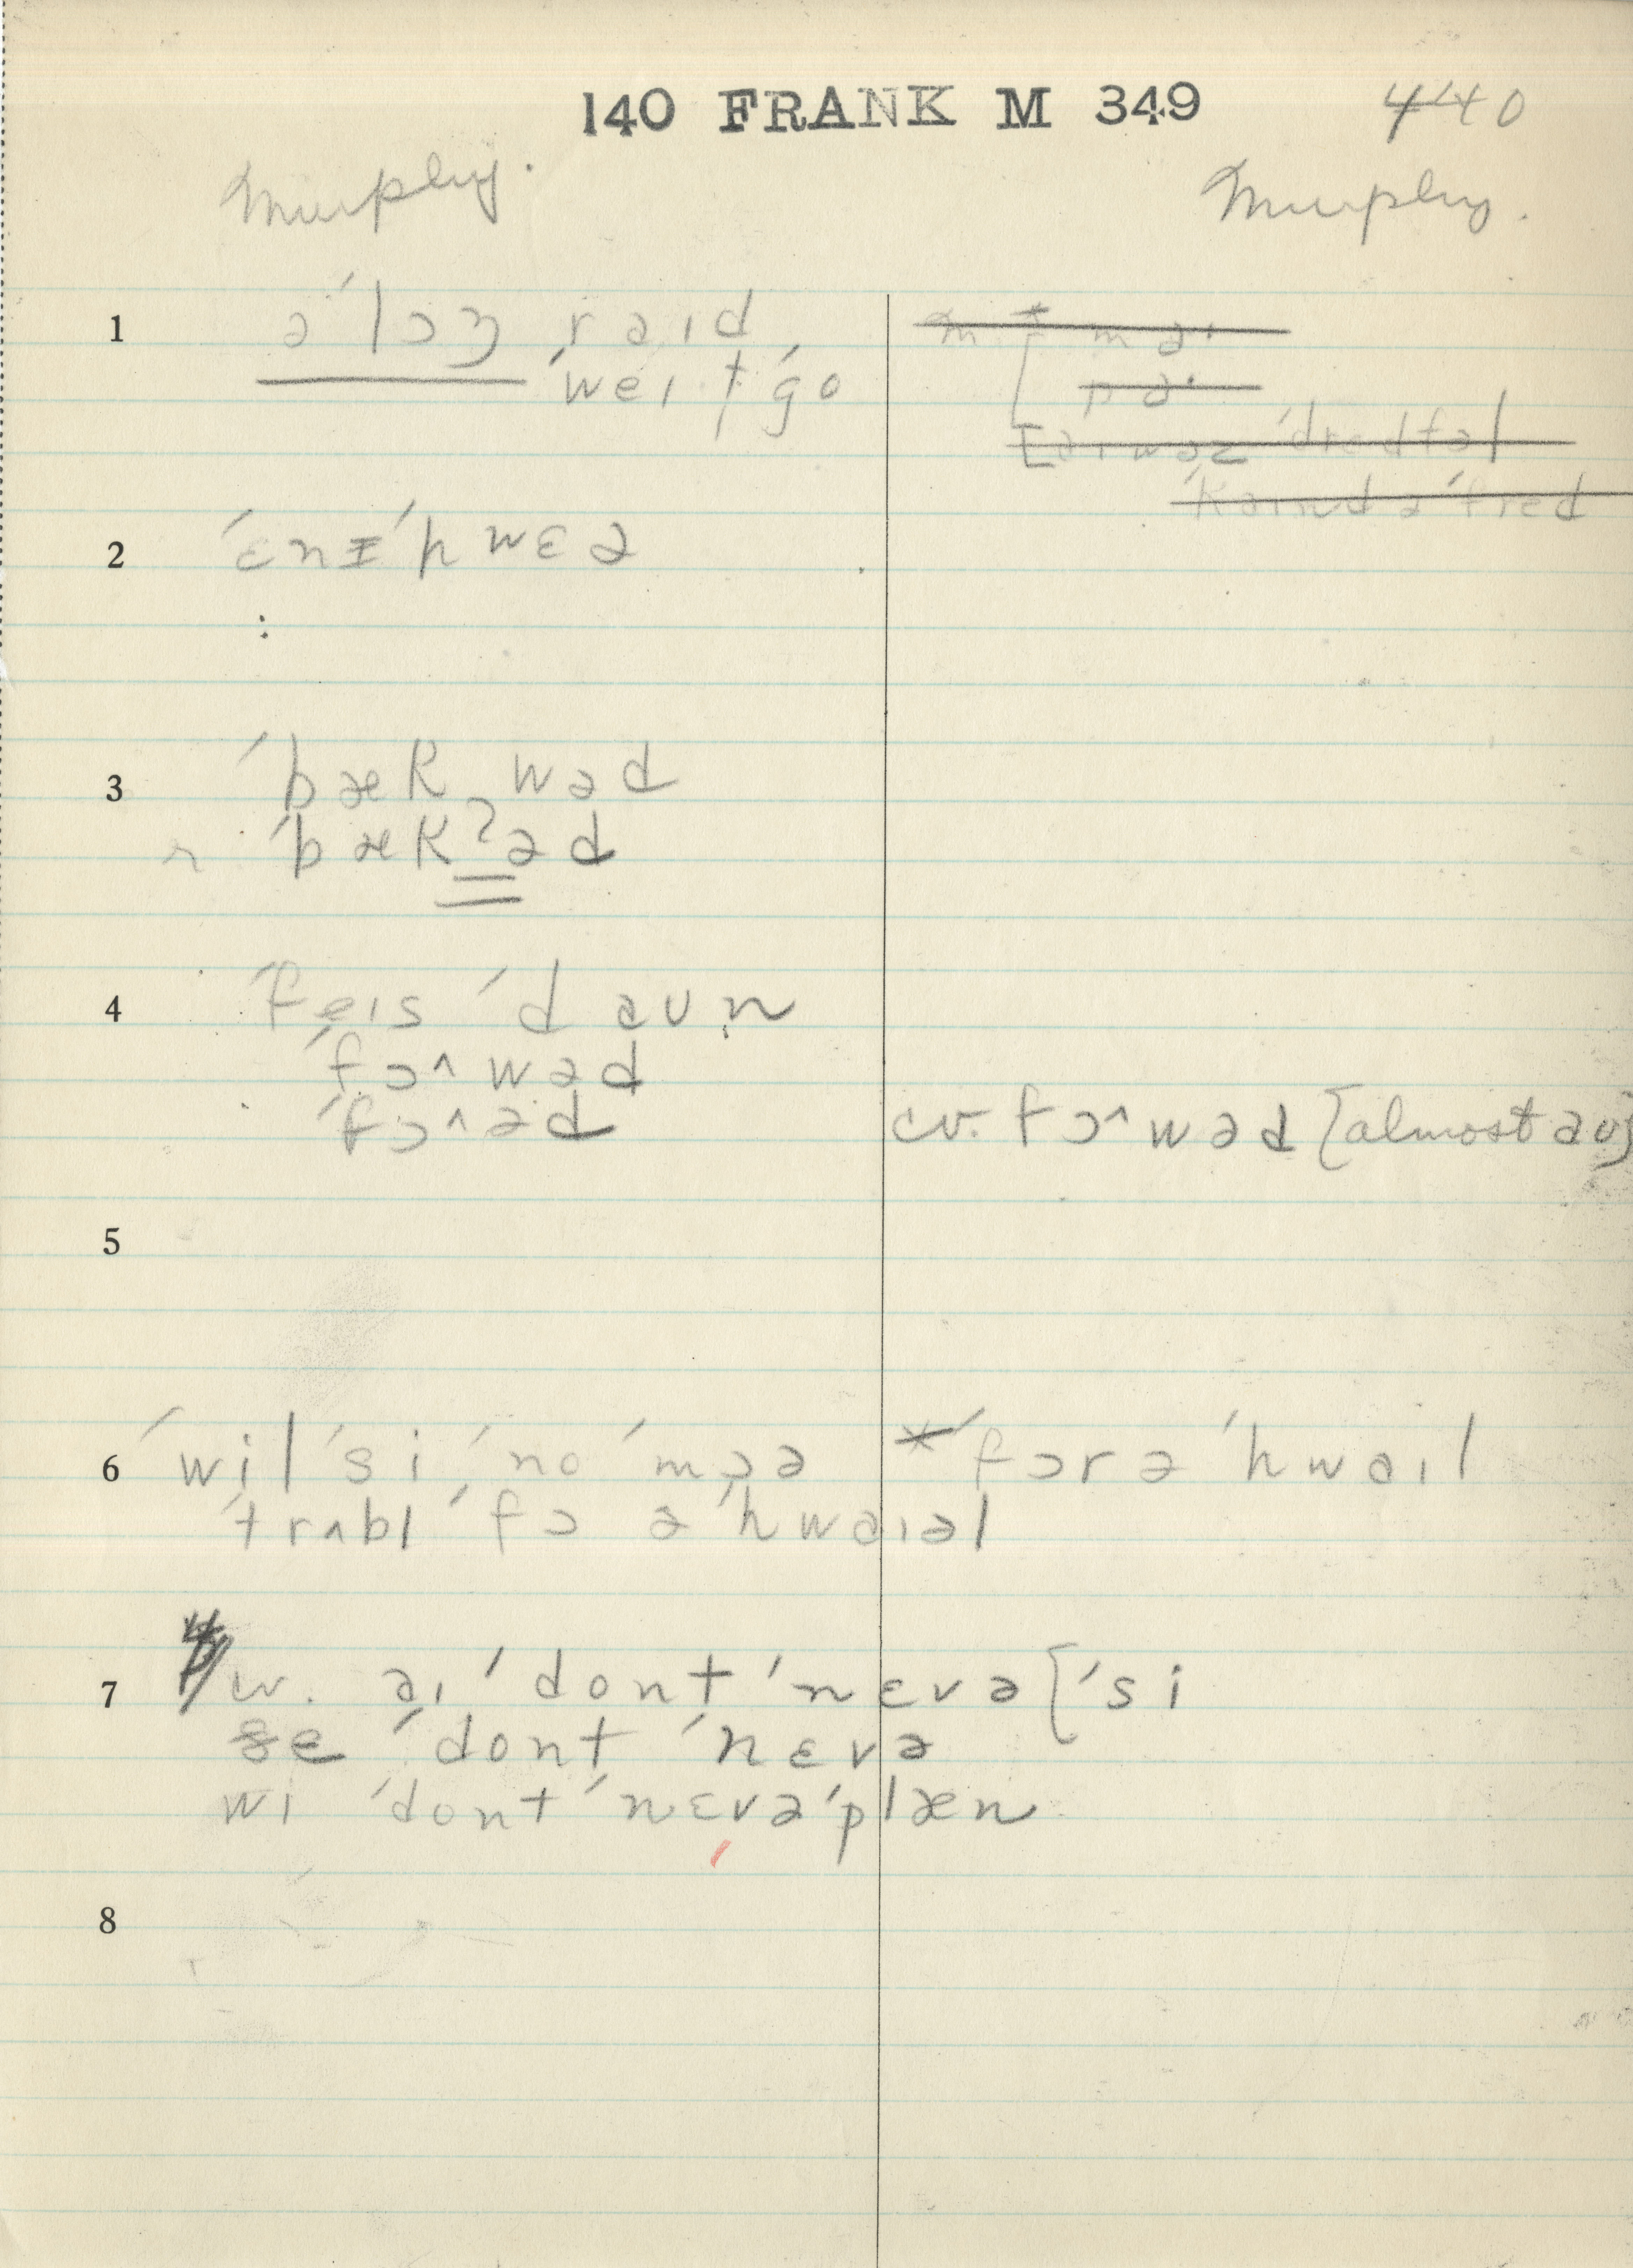 140 FRANK M 349 440
Murphy. Murphy.
1 ə ˈlɔŋ raɪd
ˈweɪ t ˈgo
ˈdredfəl
2 ˈɛnɪˈhwɛə
3 ˈbæk wəd
r ˈbækʔəd
4 ˈfeɪs ˈdaʊn
ˈfɔ^wəd
ˈfɔ^əd cv. fɔ^wəd [almost aʊ]
5
6 ˈwil ˈsi ˈno ˈmɔə * ˈfɔr ə ˈhwaɪl
ˈtrʌbl ˈfɔ ə ˈhwaɪəl
7 cv. aɪ ˈdont ˈnɛvə [ˈsi
ðe ˈdont ˈnɛvə
wi ˈdont ˈnɛvə ˈplæn
8